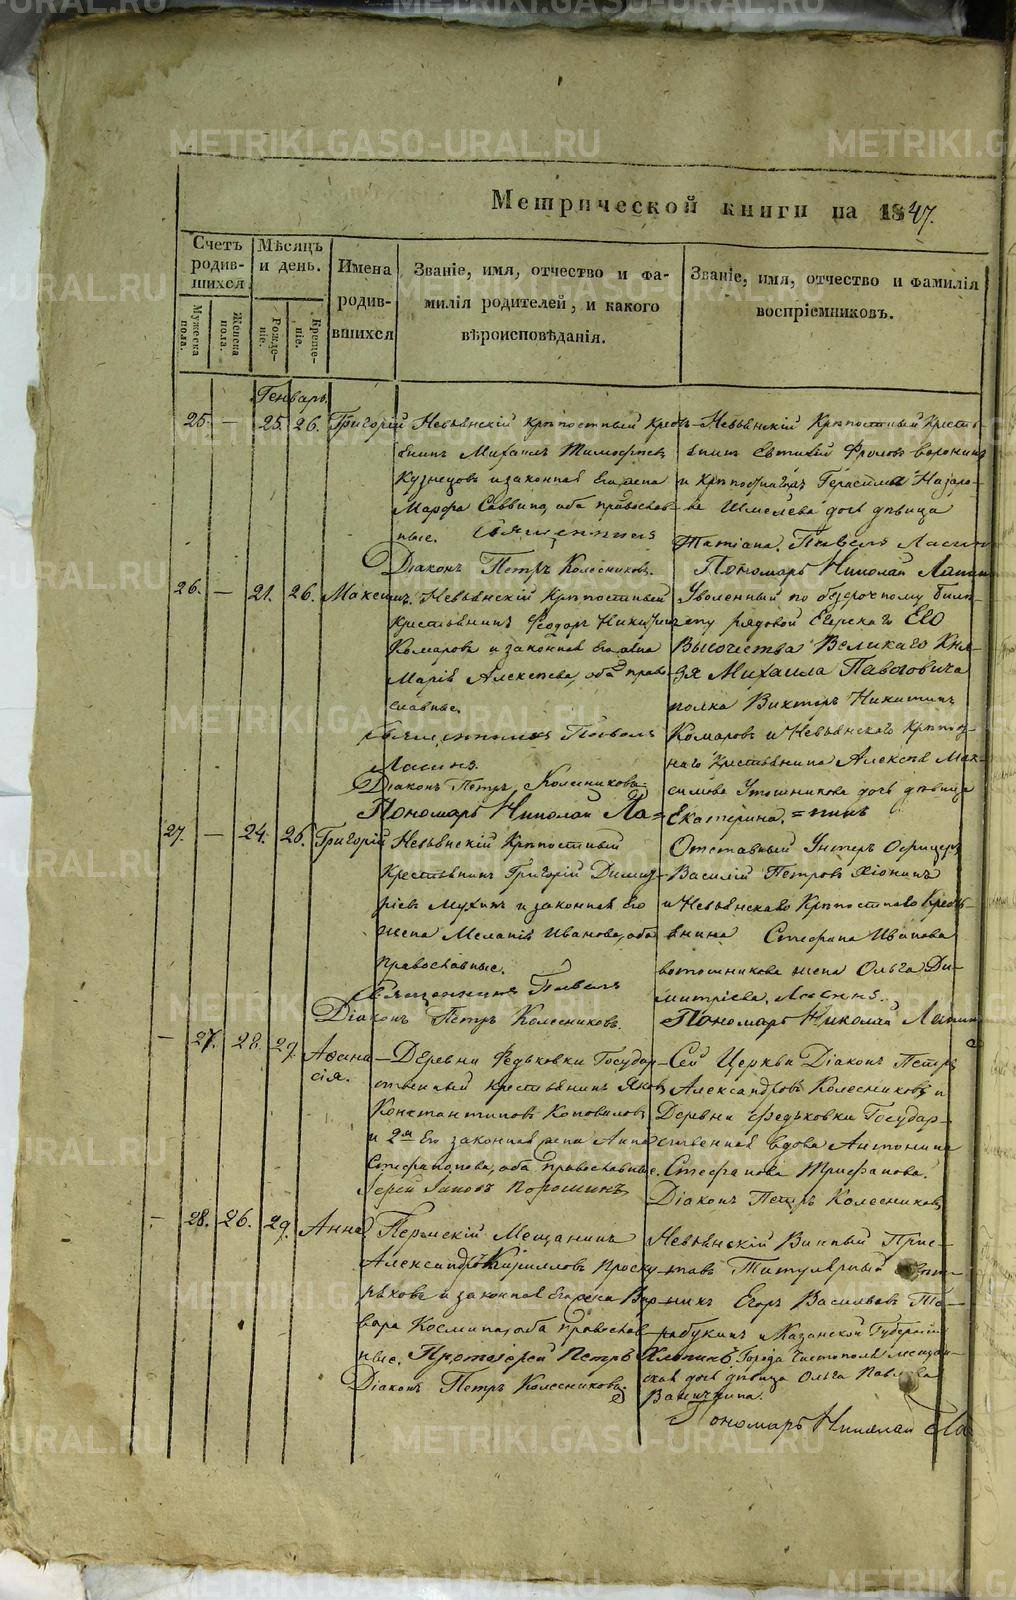 Метрической книги на 1847.
Счетъ родив-шихся
Мѣсяцъ и день.
Имена родив-шихся
Званіе, имя, отчество и фа-
милія родителей, и какого
вѣроисповѣданія.
Званіе, имя, отчество и фамилія
воспріемниковъ.
Мужеска пола.
Женска пола.
Рожде-ніе.
Креще-ніе.
Генварь.
25. — 25. 26. Григорій
Невьянскій крѣпостный крес
Михаилъ Тимофеевъ
Кузнецовъ и законная его жена
Марфа Саввина, оба православ
ные. Священникъ
Діаконъ Петръ Колесниковъ.
Невьянскій Крѣпостный Кресть-
янинъ Евтихій Фроловъ Воронинъ
и крѣпостнаго Герасима Назаро-
ва Шмелева дочь дѣвица
Татіана. Павелъ
Пономарь Николай Лапинъ
26. — 21. 26. Максимъ.
Невьянскій Крѣпостный
Крестьянинъ Феодоръ Никитинъ
Комаровъ и законная его жена
Марія Алексѣева, оба право
славные.
Священникъ Павелъ
Діаконъ Петръ Колесниковъ
Пономарь Николай Ла=
Уволенный по безсрочному биле-
ту рядовой Егерскаго Его
Высочества Великаго Кня-
зя Михаила Павловича
полка Викторъ Никитинъ
Комаровъ и Невьянскаго Крѣпост-
наго Крестьянина Алексѣя Мак-
симова дочь дѣвица
Екатерина, =пинъ
27. — 24. 26. Григорій
Невьянскій Крѣпостный
Крестьянинъ Григорій Димит-
ріевъ Мухинъ и законная его
жена Меланія Иванова, оба
православные.
Священникъ Павелъ
Діаконъ Петръ Колесниковъ.
Отставный Унтеръ Офицеръ
Василій Петровъ Хіонинъ
и Невьянскаво Крѣпостнаво Кресть-
янина Стефана Иванова
жена Ольга Ди-
митріева.
Пономарь Николай Лапинъ
— 27. 28. 29. Афана
сія.
Деревни Федьковки Государ-
ственный крестьянинъ Яковъ
Константиновъ Коновалов
и 2м его законная жена Анна
Стефанова, оба православные.
Іерей Іаковъ Порошинъ
Сей Церкви Діаконъ Петръ
Александровъ Колесниковъ и
Деревни Федьковки Государ-
ственная вдова Антонина
Стефанова Трифанова.
Діаконъ Петръ Колесниковъ
— 28. 26. 29. Анна
Пермскій Мещанинъ
Александръ Кирилловъ Проску
ряковъ и законная его жена Вар
вара Космина, оба православ
ные. Протоіерей Петръ
Діаконъ Петръ Колесниковъ
Невьянскій Винный При-
ставъ Титулярный
Егоръ Васильевъ
и Казанской Губерніи
Города Чистополя мещан-
ская дочь дѣвица Ольга Павлова
Пономарь Николай Ла